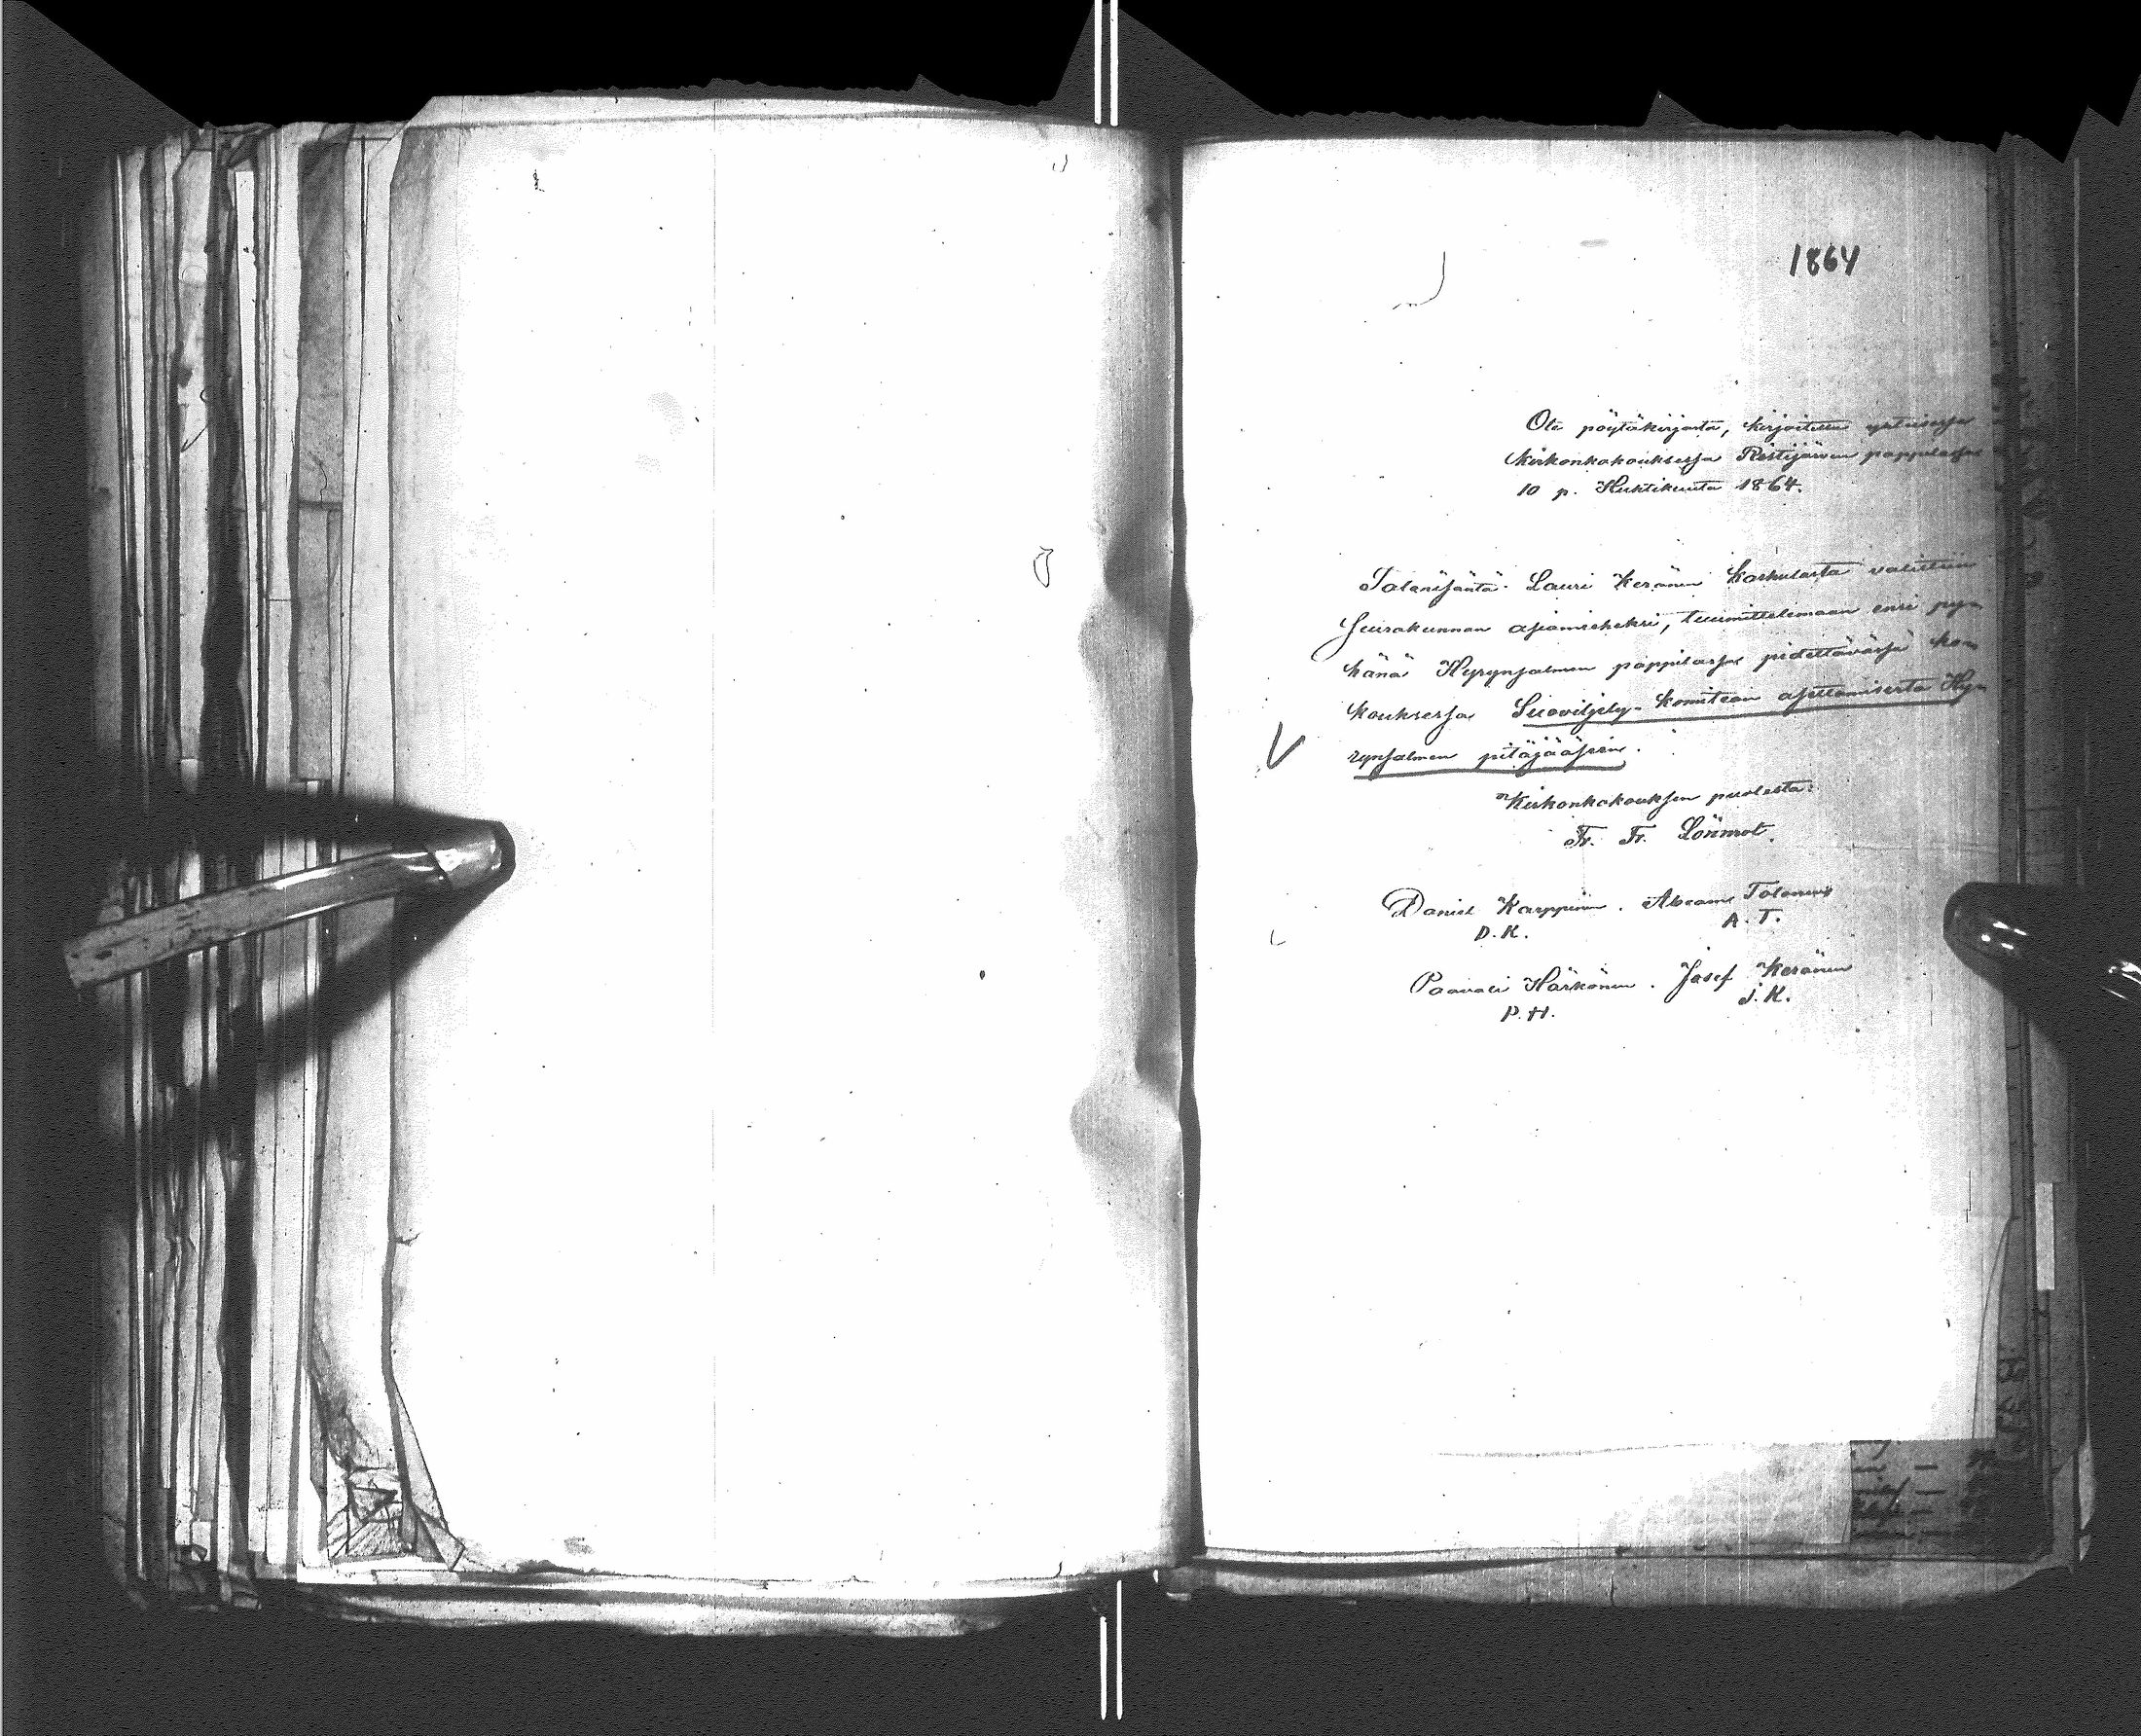 1864
Ote pöytäkirjasta, kirjoitettu yhteisessä
kirkonkokouksessa Ristijärven pappilassa
10 p. Huhtikuuta 1864.
Talonisäntä Lauri Keränen Karhulasta valittiin
Seurakunnan asiamieheksi, tuumittelemaan ensi py-
hänä Hyrynsalmen pappilassa pidettävässä ko-
kouksessa Suoviljely-komitean asettamisesta Hy-
rynsalmen pitäjääsen.
Kirkonkokouksen puolesta:
Fr. Fr. Lönnrot.
Daniel Karppinen. Abram Tolonen
D. K. A. T.
Paavali Härkönen. Josef Keränen
P. H. J. K.